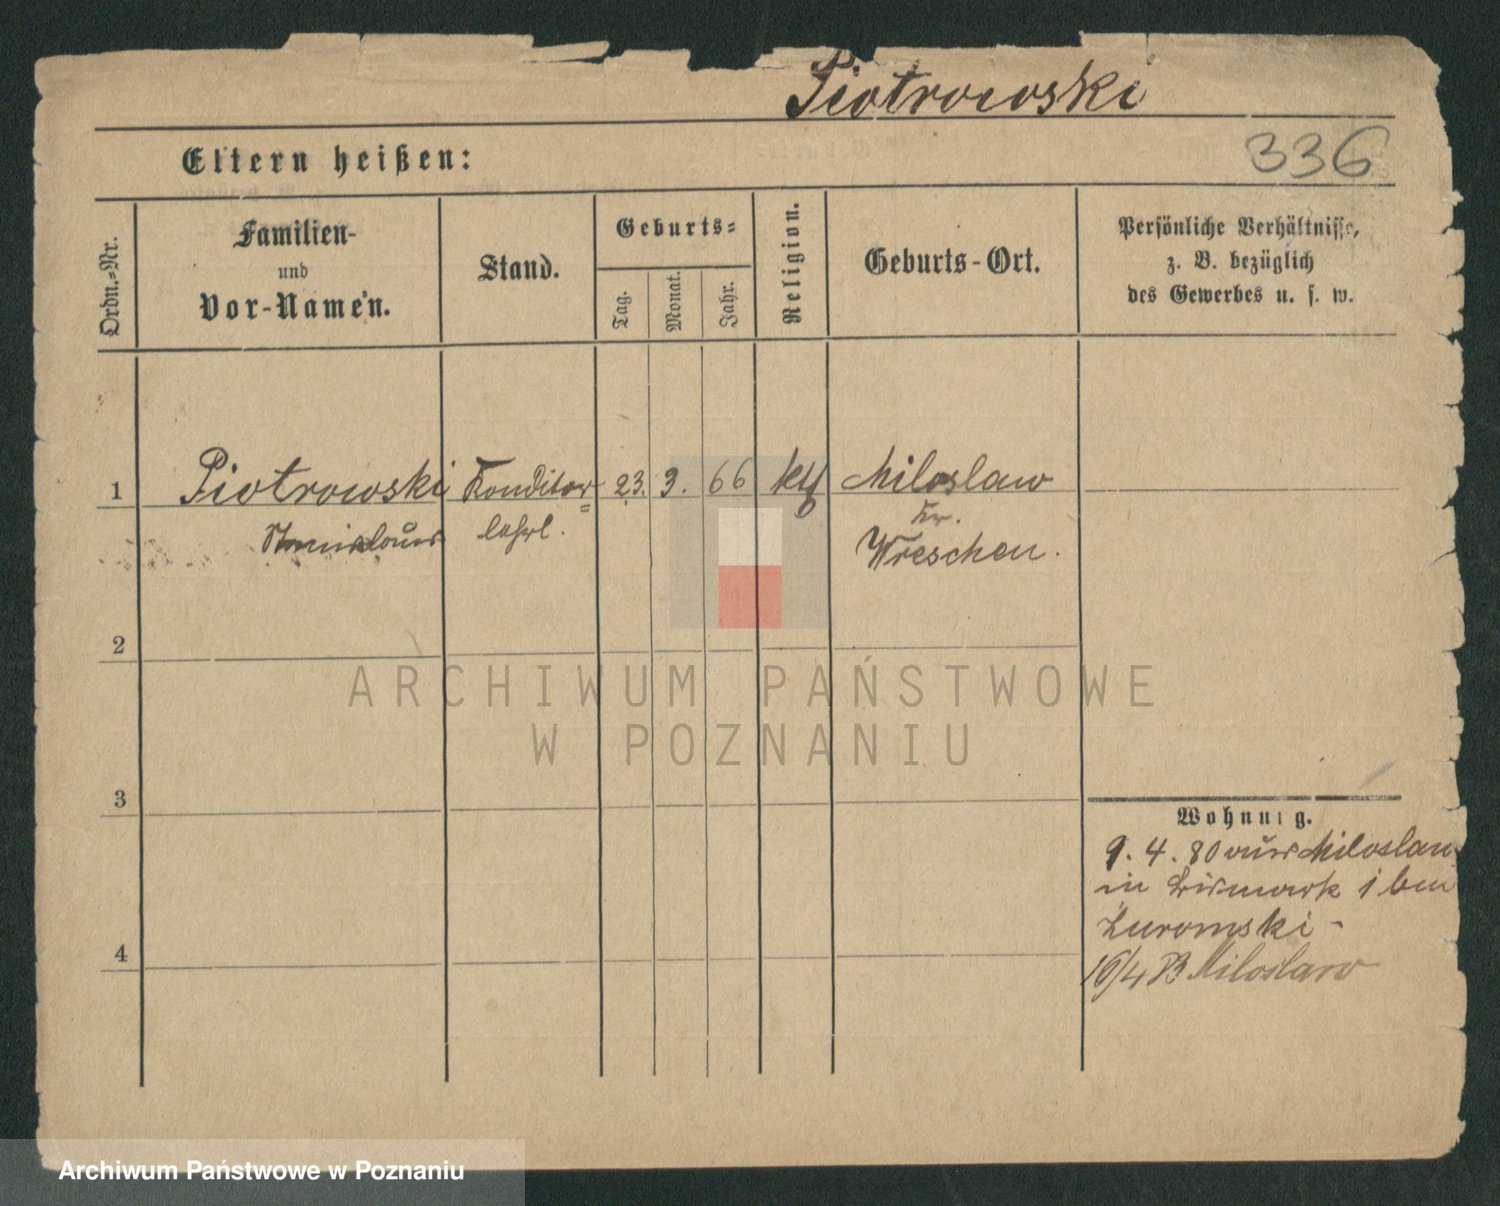 Piotrowski
336
Eltern heißen:
Ordn.-Nr.
Familien-
und
Vor-Namen.
Stand.
Geburts-
Tag.
Monat.
Jahr.
Religion.
Geburts-Ort.
Persönliche Verhältnisse,
z. B. bezüglich
des Gewerbes u. s. w.
1 Piotrowski Konditor= 23. 3. 66 kth Miloslaw
Stanislaus lehrl. Kr.
Wreschen.
2
3
4
Wohnung.
9. 4. 80 aus Miloslaw
in Bismark 1 bei
Zuromski-
16/4 Miloslaw
ARCHIWUM PAŃSTWOWE
W POZNANIU
Archiwum Państwowe w Poznaniu